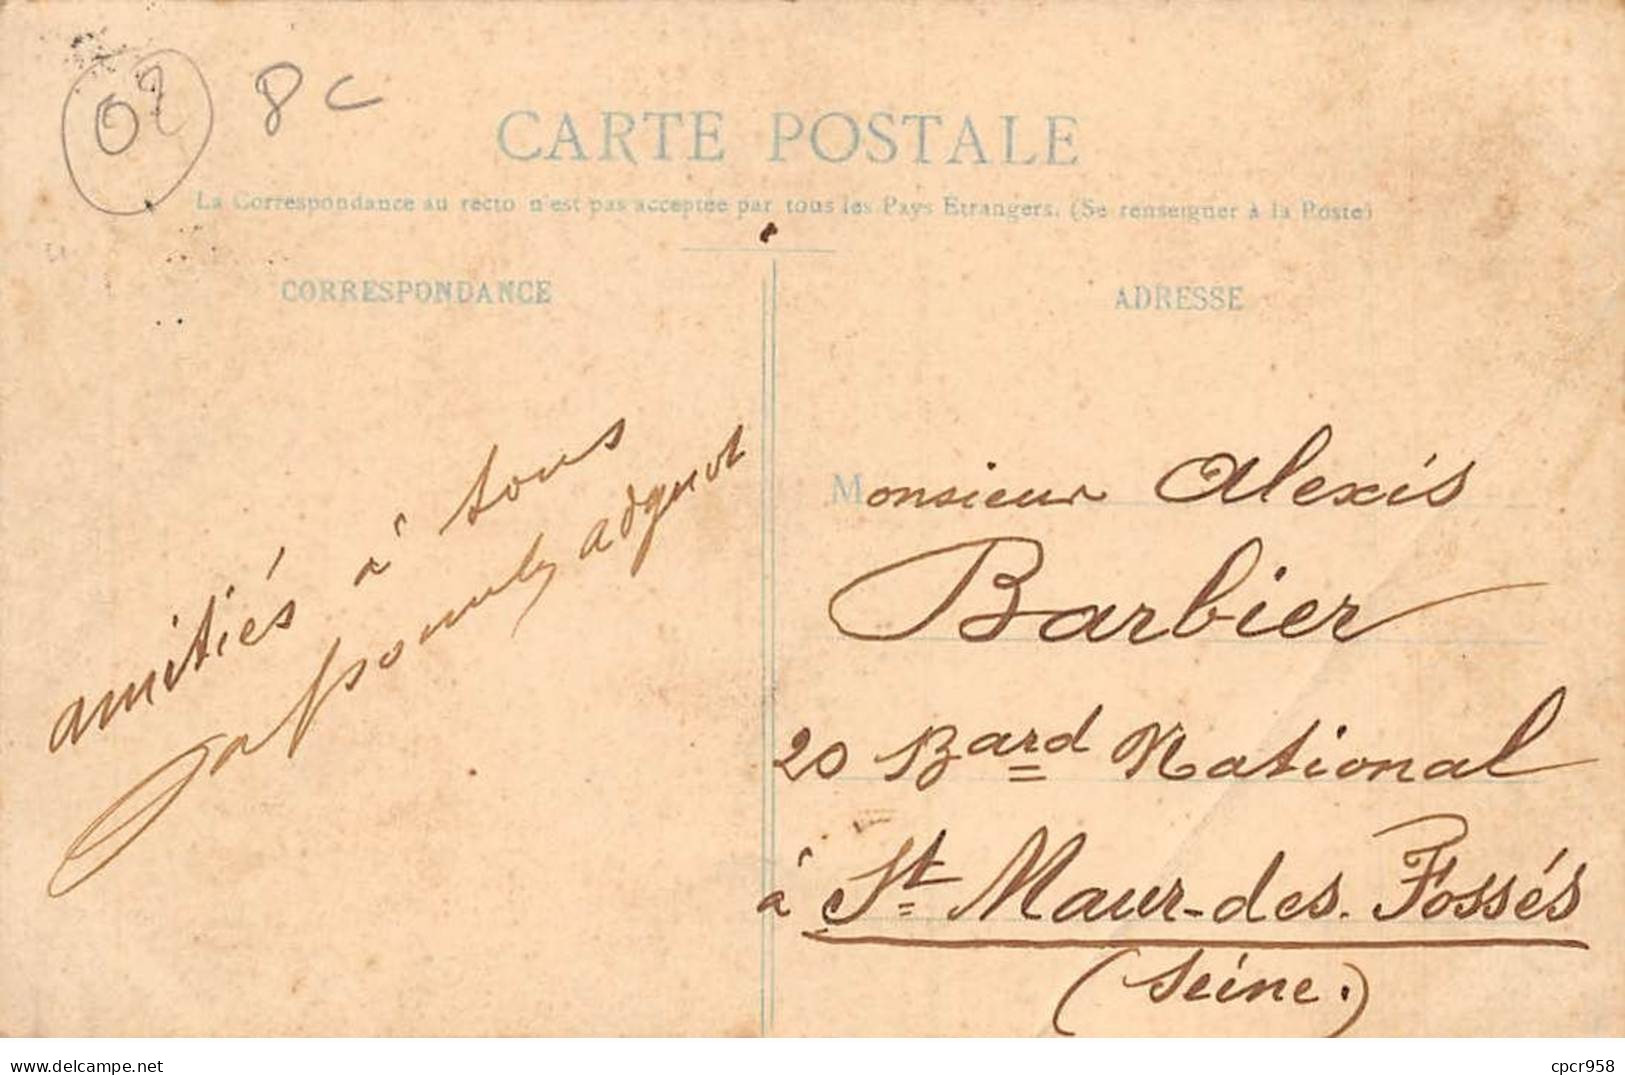 02 8C
CARTE POSTALE
La Correspondance au recto n'est pas acceptée par tous les Pays Etrangers. (Se renseigner à la Poste)
CORRESPONDANCE
ADRESSE
amitiés à tous
Monsieur Alexis
Barbier
20 Bard National
à St Maur-des-Fossés
(Seine.)
www.delcampe.net
cpcr958